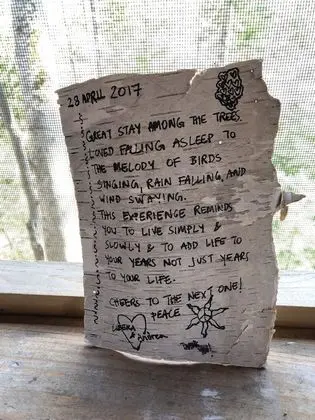 28 APRIL 2017
GREAT STAY AMONG THE TREES.
LOVED FALLING ASLEEP TO
THE MELODY OF BIRDS
SINGING, RAIN FALLING, AND
WIND SWAYING.
THIS EXPERIENCE REMINDS
YOU TO LIVE SIMPLY &
SLOWLY & TO ADD LIFE TO
YOUR YEARS NOT JUST YEARS
TO YOUR LIFE.
CHEERS TO THE NEXT ONE!
PEACE
&